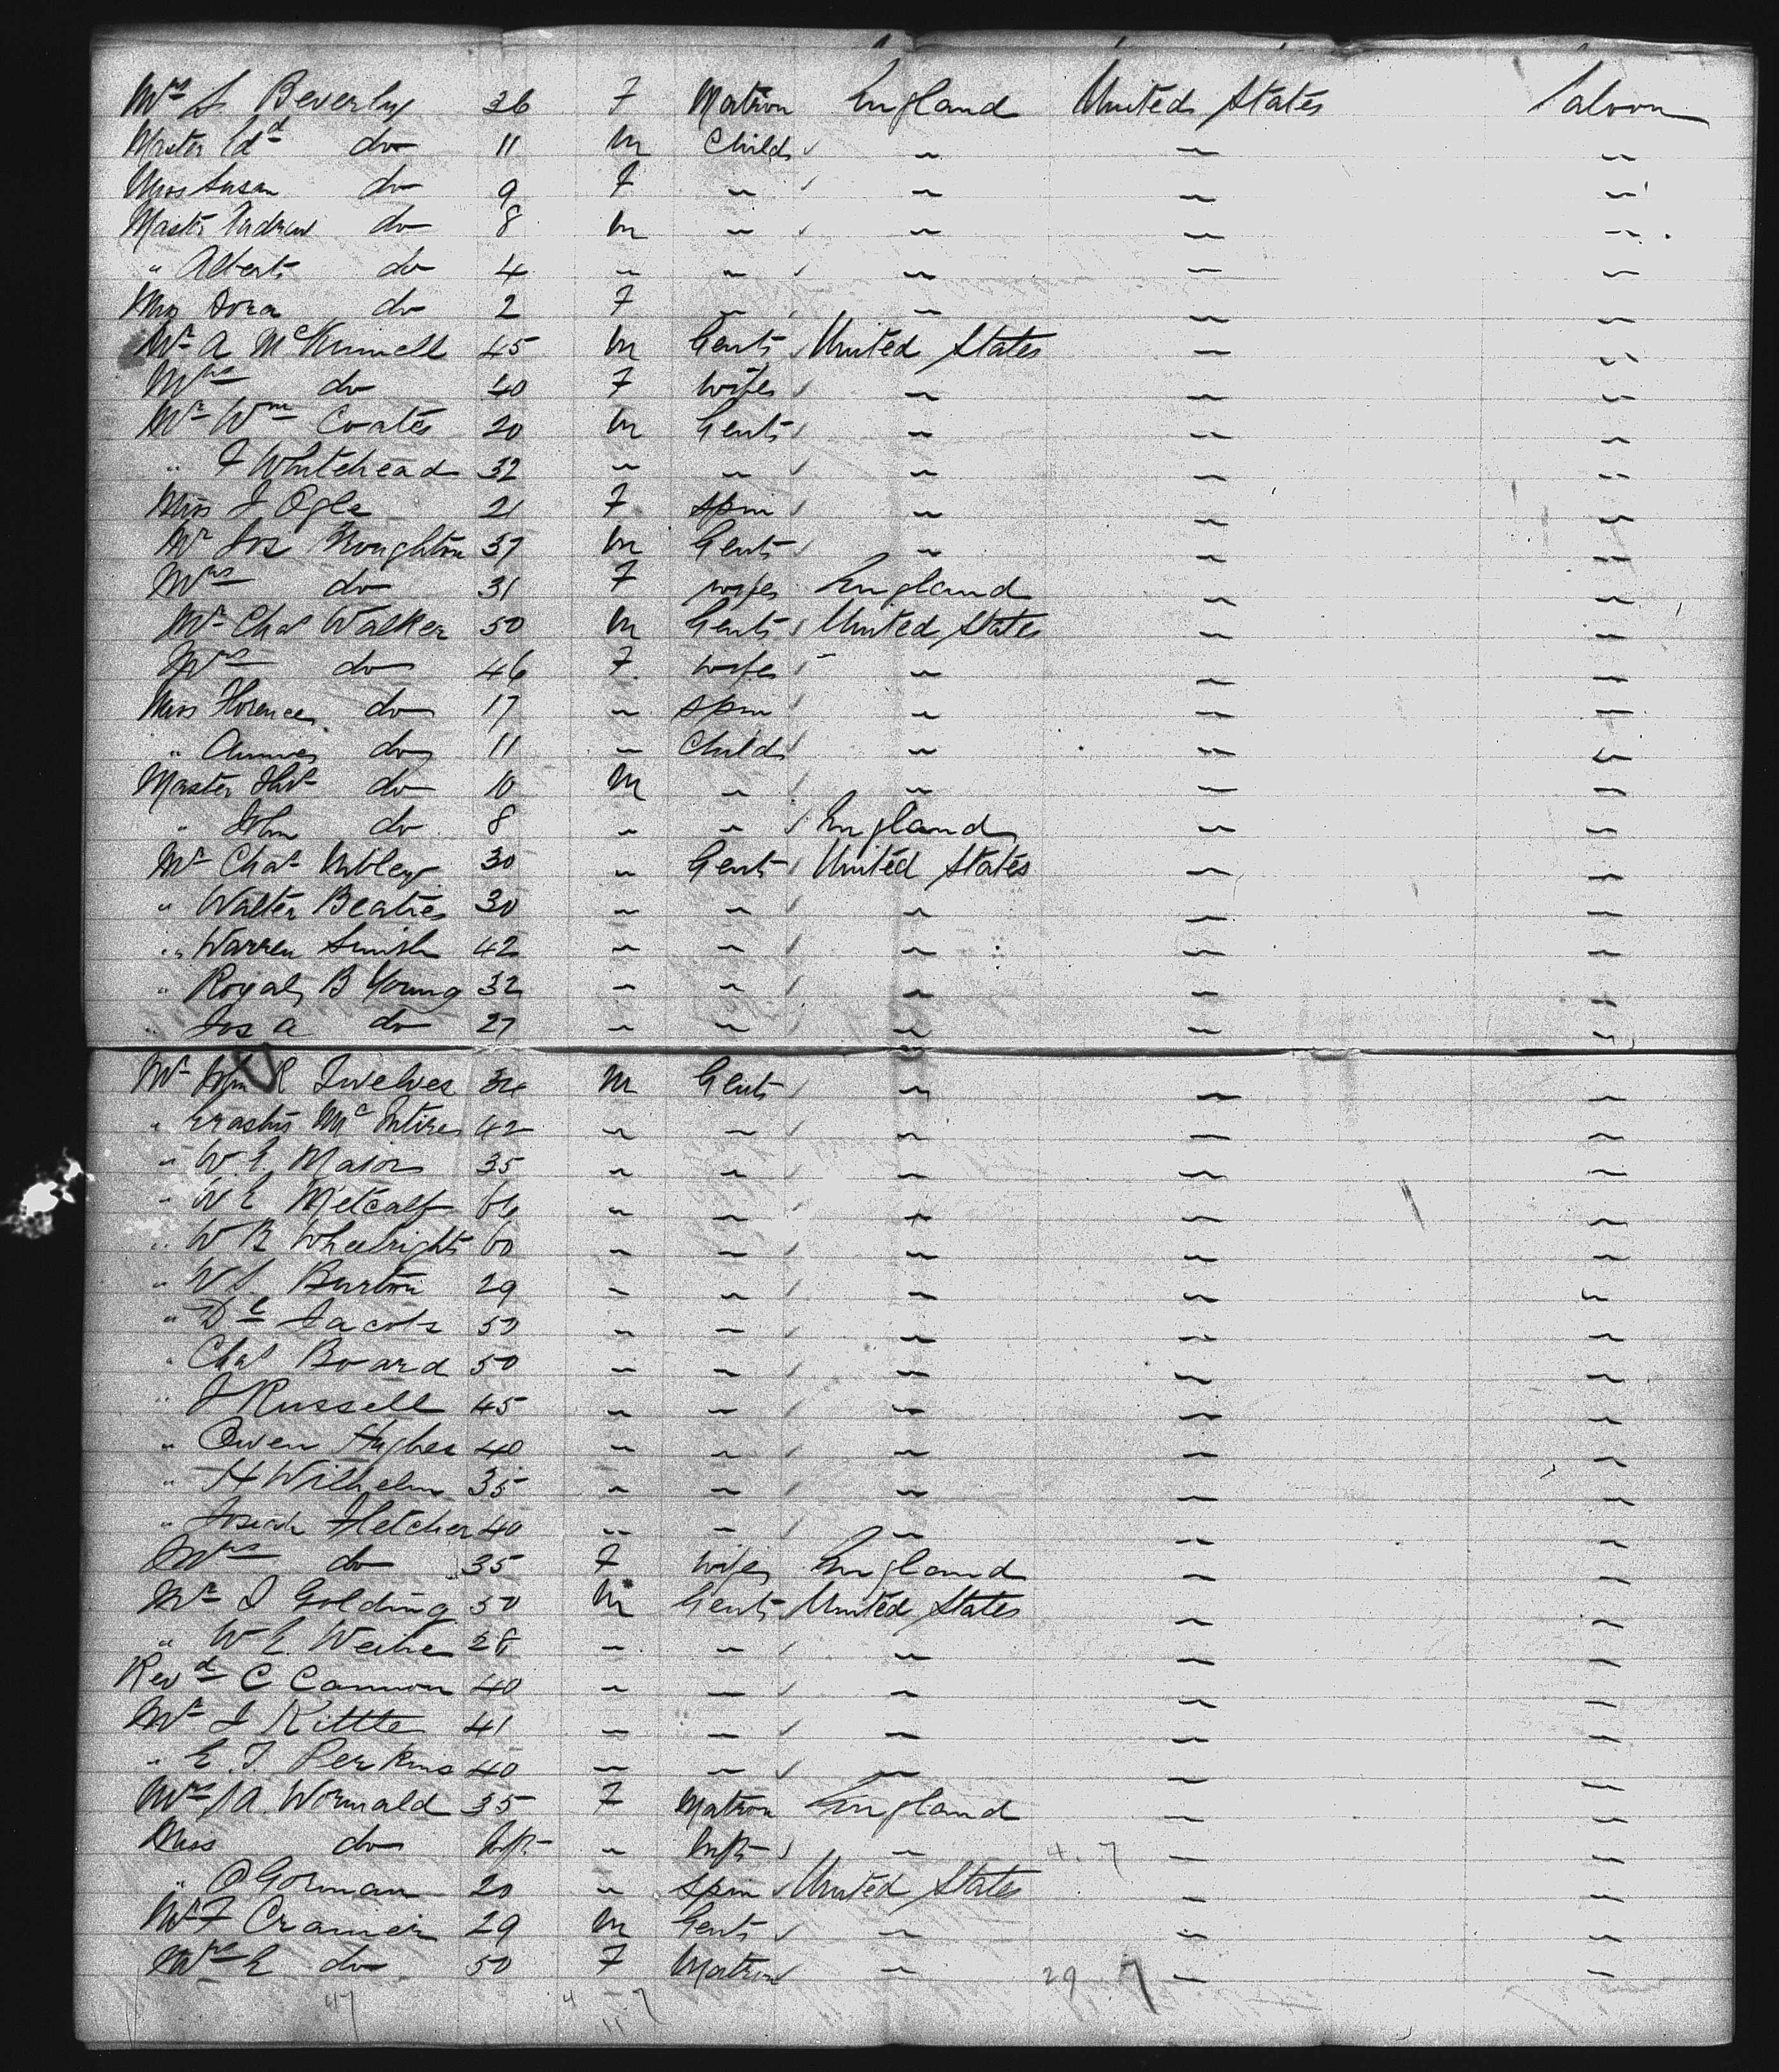 Mrs S. Beverly 36 F Matron England United States Saloon
Master Edd do 11 M Child " " "
Miss Susan do 9 F " " " "
Master Andrew do 8 M " " " "
" Albert do 4 " " " " "
Miss Dora do 2 F " " " "
Mr A McKinnell 45 M Gent United States " "
Mrs do 40 F wife " " "
Mr Wm Coates 20 M Gent " " "
" J Whitehead 32 " " " " "
Miss J Ogle 21 F spin " " "
Mr Jos Broughton 37 M Gent " " "
Mrs do 31 F wife England " "
Mr Chas Walker 50 M Gent United States " "
Mrs do 46 F wife " " "
Miss Florence do 17 " spin " " "
" Annie do 11 " Child " " "
Master do 10 M " " " "
" John do 8 " " England " "
Mr Chas 30 " Gent United States " "
" Walter Beatie 30 " " " " "
" Warren Smith 42 " " " " "
" Royal B Young 32 " " " " "
" Jos A do 27 " " " " "
Mr John R Twelves 34 M Gent " " "
" Erastus McIntire 42 " " " " "
" W. E. Major 35 " " " " "
" W E Metcalf " " " " "
" W B Wheelright 60 " " " " "
" W S. Burton 29 " " " " "
" Jacobs 50 " " " " "
" Chas Board 50 " " " " "
" J Russell 45 " " " " "
" Owen Hughes 40 " " " " "
" H Wilhelm 35 " " " " "
" Josiah Fletcher 40 " " " " "
Mrs do 35 F wife England " "
Mr J Golding 50 M Gent United States " "
" W E. 28 " " " " "
Revd C Cannon 40 " " " " "
Mr J Kittle 41 " " " " "
" E. T. Perkins 40 " " " " "
Mrs A. Wormald 35 F Matron England " "
Miss do Inft " Inft " 4. 7 " "
" O Gorman 20 " spin United States " "
Mr F Cramer 29 M Gent " " "
Mrs E do 50 F Matron " 29. 7 " "
47 4 7
11